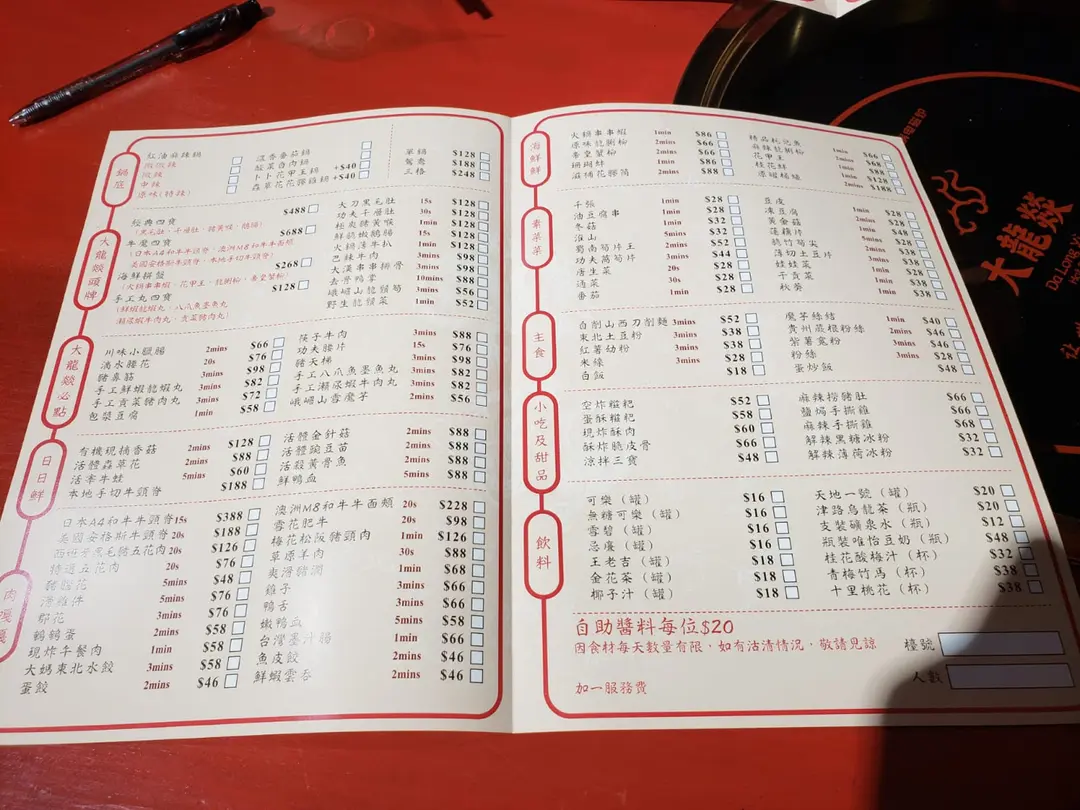 鍋底
紅油麻辣鍋
微辣
中辣
原味(特辣)
溫香番茄鍋
酸菜白肉鍋
卜卜花甲王鍋 +$40
蟲草花花膠雞鍋 +$40
單鍋 $128
鴛鴦 $188
三格 $248
大龍燚頭牌
經典四寶 $488
牛魔四寶 $688
海鮮拼盤 $268
手工丸四寶 $128
大刀黑毛肚 15s $128
功夫千層肚 30s $128
極爽黃喉 1min $128
鮮鵝嫩鵝腸 15s $128
火鍋薄牛扒 1min $128
巴辣牛肉 3mins $98
大漢串串排骨 3mins $98
去骨鴨掌 10mins $88
峨嵋山龍鬚筍 3mins $56
野生龍鬚菜 1min $52
大龍燚必點
川味小臘腸 2mins $66
滴水腰花 20s $76
豬鼻筋 3mins $98
手工鮮蝦龍蝦丸 3mins $82
手工貢菜豬肉丸 3mins $72
包漿豆腐 1min $58
筷子牛肉 3mins $88
功夫腰片 15s $76
豬天梯 3mins $98
手工八爪魚墨魚丸 3mins $82
手工瀨尿蝦牛肉丸 3mins $82
峨嵋山雪魔芋 2mins $56
日日鮮
有機現摘香菇 2mins $128
活體蟲草花 2mins $88
活牽牛蛙 5mins $60
本地手切牛頸脊 $188
活體金針菇 2mins $88
活體豌豆苗 2mins $88
活殺黃骨魚 5mins $88
鮮鴨血 5mins $48
肉嘎嘎
日本A4和牛牛頸脊 15s $388
美國安格斯牛頸脊 20s $188
西班牙黑毛豬五花肉 20s $126
特選五花肉 20s $76
豬腦花 5mins $48
滑雞件 5mins $76
郡花 3mins $76
鵪鶉蛋 2mins $58
現炸午餐肉 1min $58
大媽東北水餃 3mins $58
蛋餃 2mins $46
澳洲M8和牛牛面頰 20s $228
雪花肥牛 20s $98
梅花松阪豬頸肉 1min $126
草原羊肉 30s $88
爽滑豬潤 1min $68
雞子 3mins $66
鴨舌 3mins $66
嫩鴨血 5mins $58
台灣墨汁腸 1min $66
魚皮餃 2mins $46
鮮蝦雲吞 2mins $46
海鮮
火鍋串串蝦 1min $86
原味龍脷柳 2mins $66
秦皇蟹柳 2mins $66
珊瑚蚌 1min $88
滋補花膠筒 2mins $88
精品耗兒魚 1min $66
麻辣龍脷柳 2mins $68
花甲王 1min $88
桂花鮮 2mins $128
2mins $188
素菜菜
千張 1min $28
油豆腐串 1min $28
冬菇 1min $32
淮山 5mins $32
蜀南筍片王 2mins $52
功夫萵筍片 3mins $44
唐生菜 20s $28
通菜 30s $28
番茄 1min $28
豆皮 1min $28
凍豆腐 2mins $28
黃金菇 1min $48
蓮藕片 5mins $28
脆竹筍尖 2mins $38
薄切土豆片 3mins $28
娃娃菜 1min $28
干貢菜 1min $38
秋葵 1min $38
主食
白削山西刀削麵 3mins $52
東北土豆粉 3mins $38
紅薯幼粉 3mins $38
米線 3mins $28
白飯 $18
魔芋絲結 1min $40
貴州蕨根粉絲 2mins $46
紫薯寬粉 3mins $46
粉絲 3mins $28
蛋炒飯 $48
小吃及甜品
空炸糍粑 $52
蛋酥糍粑 $58
現炸酥肉 $60
酥炸脆皮骨 $66
涼拌三寶 $48
麻辣撈豬肚 $66
鹽焗手撕雞 $66
麻辣手撕雞 $68
解辣黑糖冰粉 $32
解辣薄荷冰粉 $32
飲料
可樂（罐） $16
無糖可樂（罐） $16
雪碧（罐） $16
忌廉（罐） $16
王老吉（罐） $18
金花茶（罐） $18
椰子汁（罐） $18
天地一號（罐） $20
津路烏龍茶（瓶） $20
支裝礦泉水（瓶） $12
瓶裝唯怡豆奶（瓶） $48
桂花酸梅汁（杯） $32
青梅竹馬（杯） $38
十里桃花（杯） $38
自助醬料每位$20
因食材每天數量有限，如有沽清情況，敬請見諒
加一服務費
檯號
人數
大龍燚